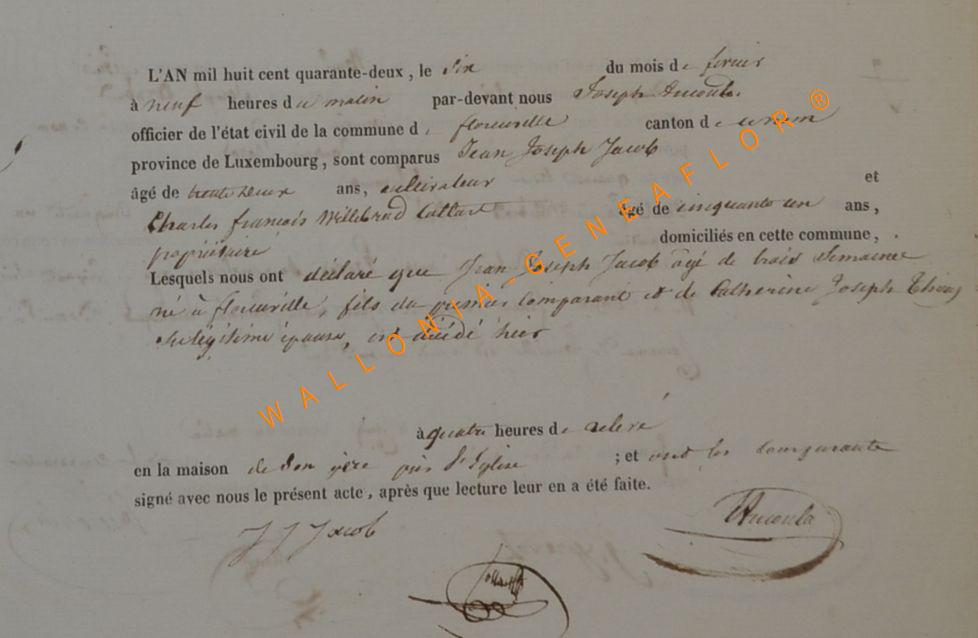 L'AN mil huit cent quarante-deux, le six du mois de fevrier
à neuf heures du matin par-devant nous Joseph
officier de l'état civil de la commune de florenville canton de
province de Luxembourg, sont comparus Jean Joseph Jacob
âgé de trente deux ans, cultivateur et
Charles françois Willebrod âgé de cinquante un ans,
propriétaire domiciliés en cette commune,
Lesquels nous ont déclaré que Jean Joseph Jacob agé de trois semaines
né à florenville, fils du premier comparant et de Catherine Joseph
sa légitime épouse, est décédé hier
à quatre heures de relevé
en la maison de son père près l'Eglise ; et ont les comparants
signé avec nous le présent acte, après que lecture leur en a été faite.
J J Jacob
WALLONIA-GENEAFLOR®